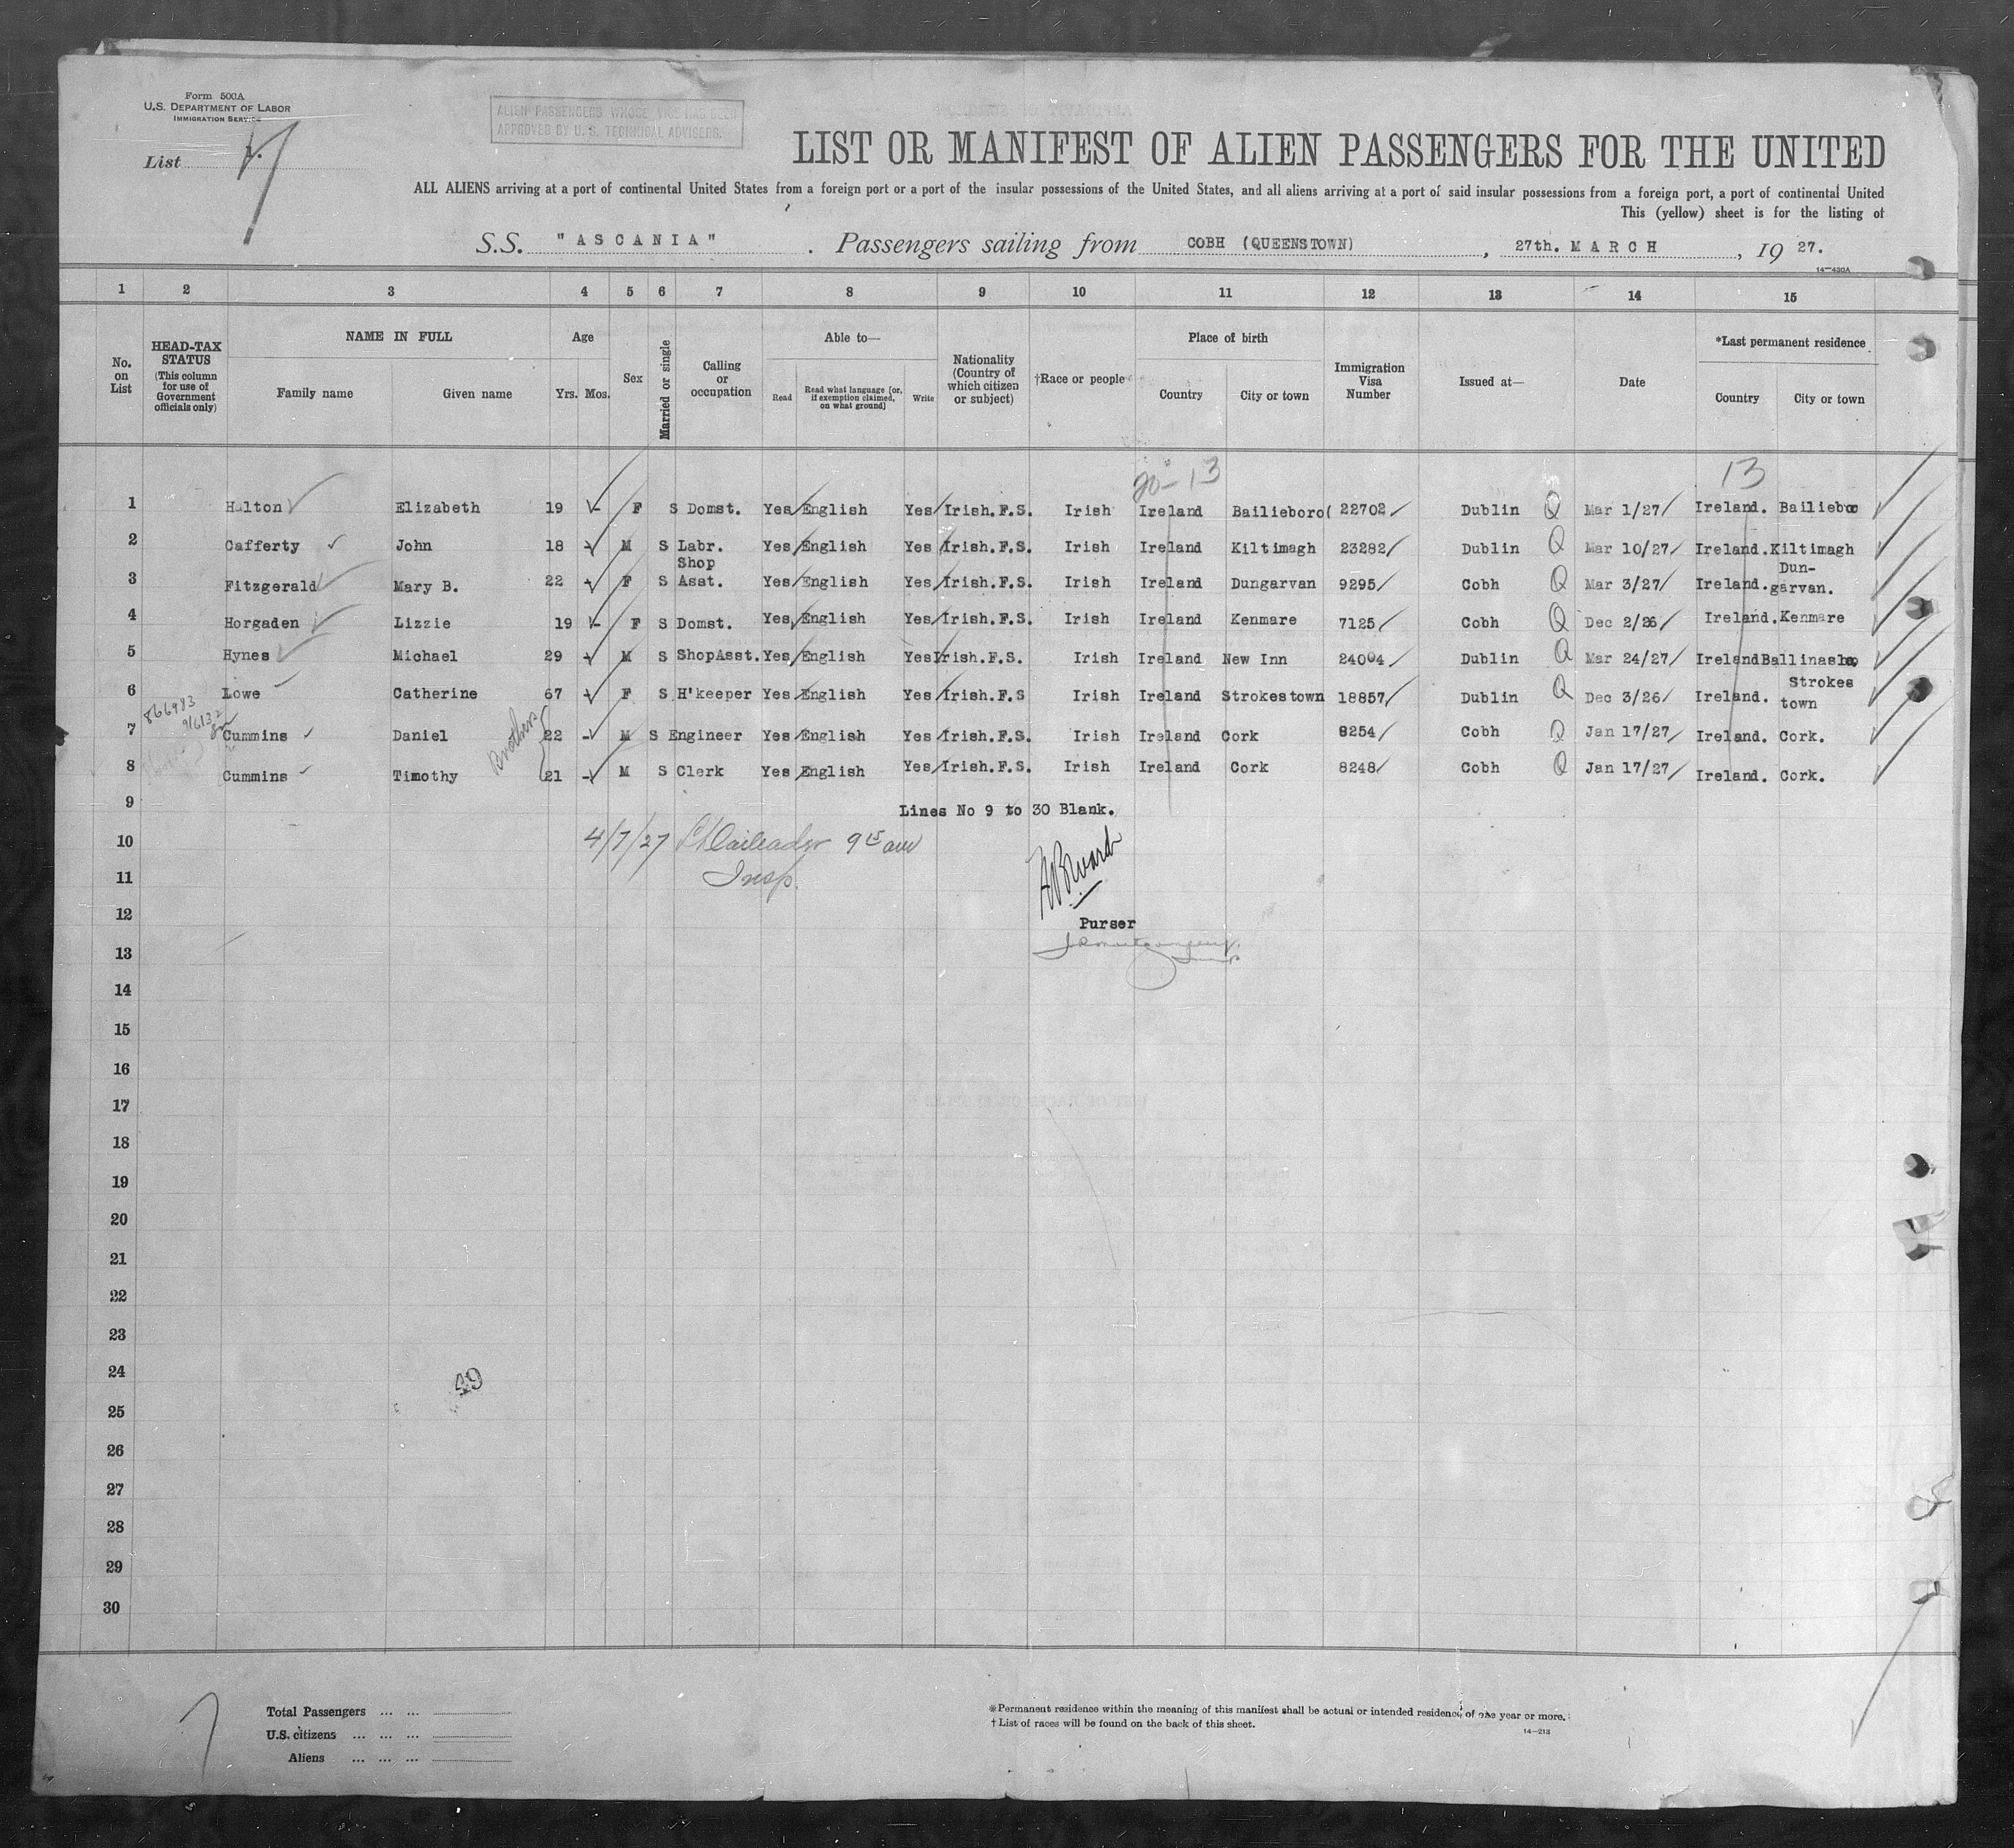 Form 500A
U.S. DEPARTMENT OF LABOR
IMMIGRATION SERVICE
List
ALIEN PASSENGERS WHOSE VISAS HAS BEEN
APPROVED BY U. S. TECHNICAL ADVISERS.
LIST OR MANIFEST OF ALIEN PASSENGERS FOR THE UNITED
ALL ALIENS arriving at a port of continental United States from a foreign port or a port of the insular possessions of the United States, and all aliens arriving at a port of said insular possessions from a foreign port, a port of continental United
This (yellow) sheet is for the listing of
S.S. "ASCANIA" . Passengers sailing from COBH (QUEENSTOWN) , 27th. MARCH , 19 27.
14—430A
1 2 3 4 5 6 7 8 9 10 11 12 13 14 15
No. on List
HEAD-TAX STATUS (This column for use of Government officials only)
NAME IN FULL
Family name Given name
Age
Yrs. Mos.
Sex
Married or single
Calling or occupation
Able to—
Read Read what language [or, if exemption claimed, on what ground] Write
Nationality (Country of which citizen or subject)
†Race or people
Place of birth
Country City or town
Immigration Visa Number
Issued at—
Date
*Last permanent residence
Country City or town
20-13 13
1 Halton Elizabeth 19 F S Domst. Yes English Yes Irish.F.S. Irish Ireland Bailieboro( 22702 Dublin Q Mar 1/27 Ireland. Bailieboro
2 Cafferty John 18 M S Labr. Yes English Yes Irish.F.S. Irish Ireland Kiltimagh 23282 Dublin Q Mar 10/27 Ireland. Kiltimagh
3 Fitzgerald Mary B. 22 F S Shop Asst. Yes English Yes Irish.F.S. Irish Ireland Dungarvan 9295 Cobh Q Mar 3/27 Ireland. Dun-garvan.
4 Horgaden Lizzie 19 F S Domst. Yes English Yes Irish.F.S. Irish Ireland Kenmare 7125 Cobh Q Dec 2/26 Ireland. Kenmare
5 Hynes Michael 29 M S ShopAsst. Yes English Yes Irish.F.S. Irish Ireland New Inn 24004 Dublin Q Mar 24/27 Ireland Ballinasloe
6 Lowe Catherine 67 F S H'keeper Yes English Yes Irish.F.S Irish Ireland Strokestown 18857 Dublin Q Dec 3/26 Ireland. Strokes town
866983
9/6/32
Brothers
7 Cummins Daniel 22 M S Engineer Yes English Yes Irish.F.S. Irish Ireland Cork 8254 Cobh Q Jan 17/27 Ireland. Cork.
8 Cummins Timothy 21 M S Clerk Yes English Yes Irish.F.S. Irish Ireland Cork 8248 Cobh Q Jan 17/27 Ireland. Cork.
9 Lines No 9 to 30 Blank.
10 4/7/27 9 15 am
11 Insp.
12 Purser
13
14
15
16
17
18
19
20
21
22
23
24
49
25
26
27
28
29
30
Total Passengers ... ...
U.S. citizens ... ... ...
Aliens ... ... ...
*Permanent residence within the meaning of this manifest shall be actual or intended residence of one year or more.
†List of races will be found on the back of this sheet.
14—213